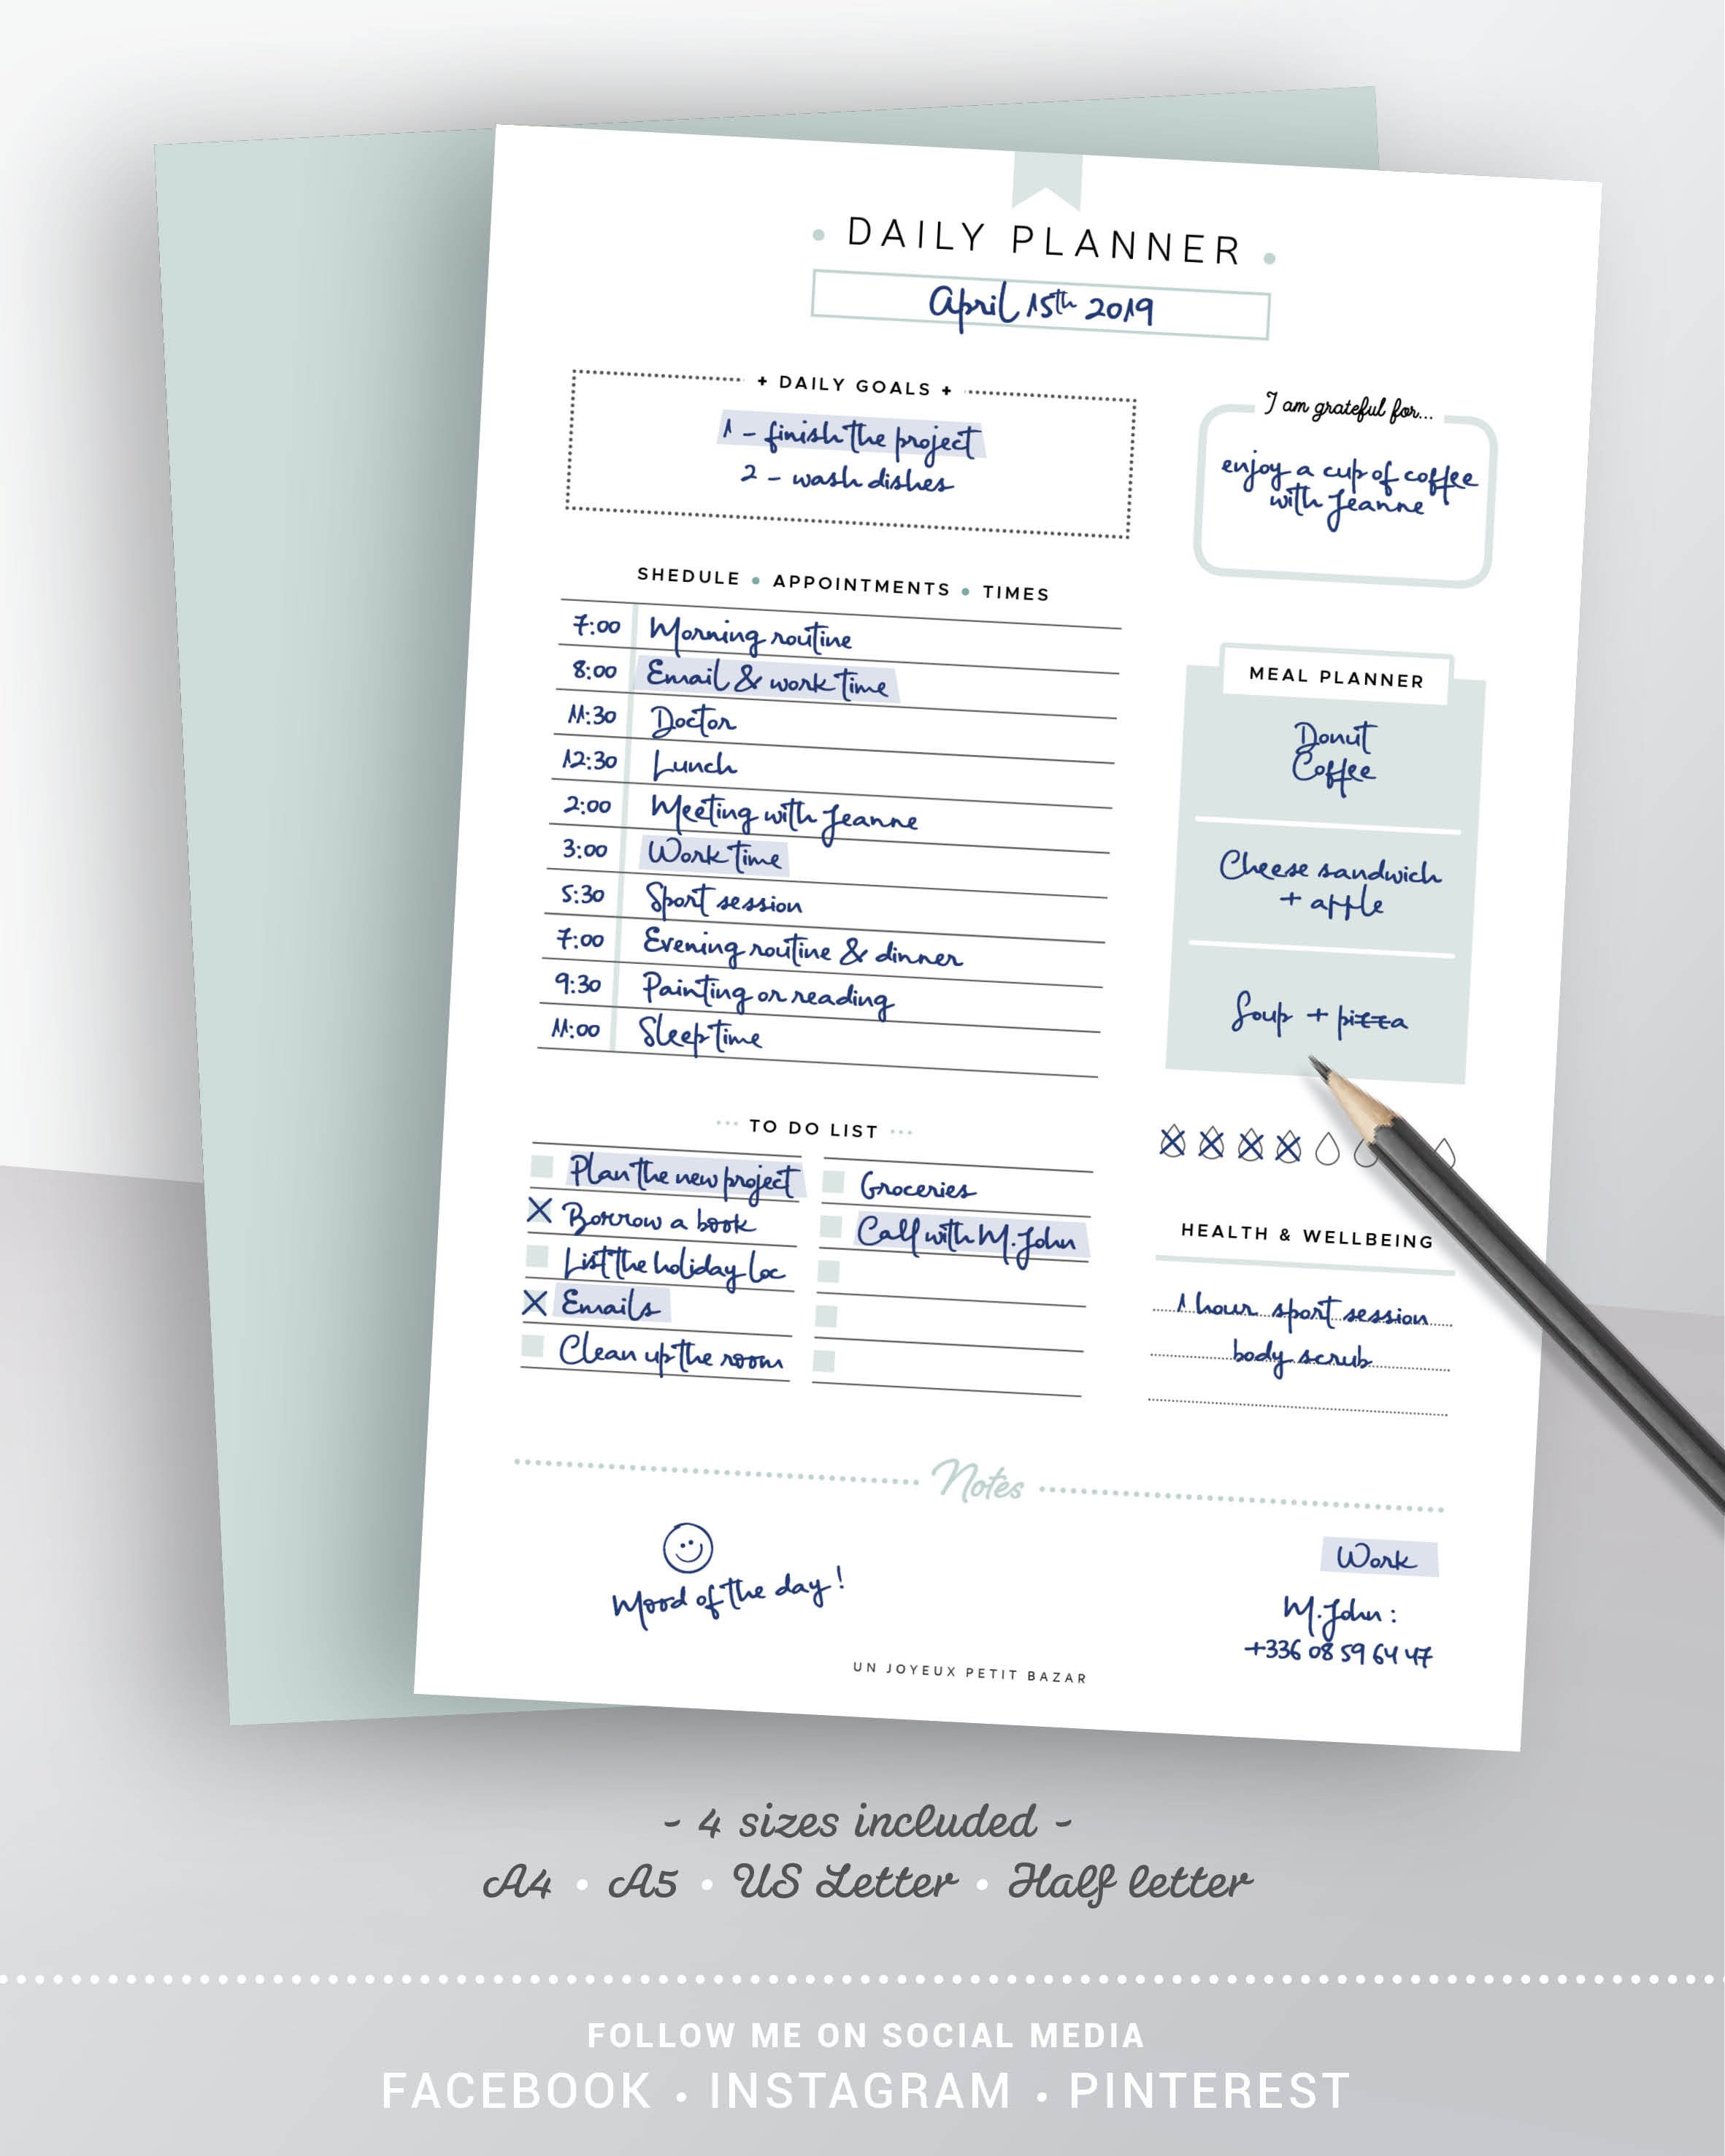 DAILY PLANNER
April 15th 2019
+ DAILY GOALS +
1 - finish the project
2 - wash dishes
I am grateful for...
enjoy a cup of coffee
with Jeanne
SHEDULE • APPOINTMENTS • TIMES
7:00 Morning routine
8:00 Email & work time
11:30 Doctor
12:30 Lunch
2:00 Meeting with Jeanne
3:00 Work time
5:30 Sport session
7:00 Evening routine & dinner
9:30 Painting or reading
11:00 Sleep time
MEAL PLANNER
Donut
Coffee
Cheese sandwich
+ apple
Soup + pizza
TO DO LIST
Plan the new project
Borrow a book
List the holiday loc
Emails
Clean up the room
Groceries
Call with M. John
HEALTH & WELLBEING
1 hour sport session
body scrub
Notes
Mood of the day!
Work
M. John :
+336 08 59 64 47
UN JOYEUX PETIT BAZAR
- 4 sizes included -
A4 • A5 • US Letter • Half letter
FOLLOW ME ON SOCIAL MEDIA
FACEBOOK • INSTAGRAM • PINTEREST